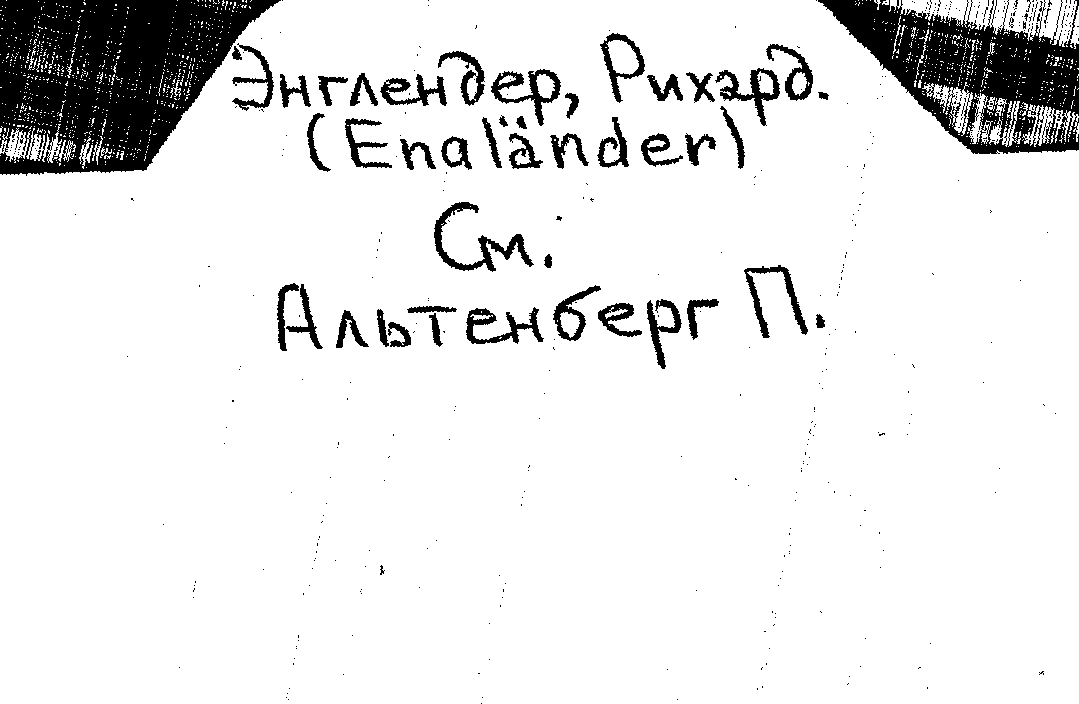 Энглендер, Рихард.
(Enaländer)
См.
Альтенберг П.